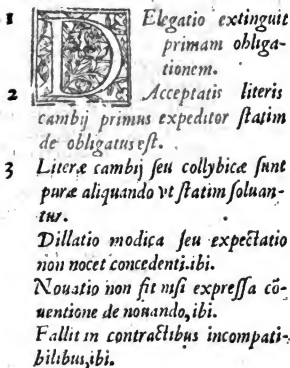 1 DElegatio extinguit
primam obliga-
tionem.
2 Acceptatis literis
cambij primus expeditor ſtatim
de obligatus eſt.
3 Literæ cambij ſeu collybicæ ſunt
puræ aliquando vt ſtatim ſoluan-
tur.
Dillatio modica ſeu expectatio
non nocet concedenti.ibi.
Nouatio non fit niſi expreſſa cō-
uentione de nouando,ibi.
Fallit in contractibus incompati-
bilibus,ibi.